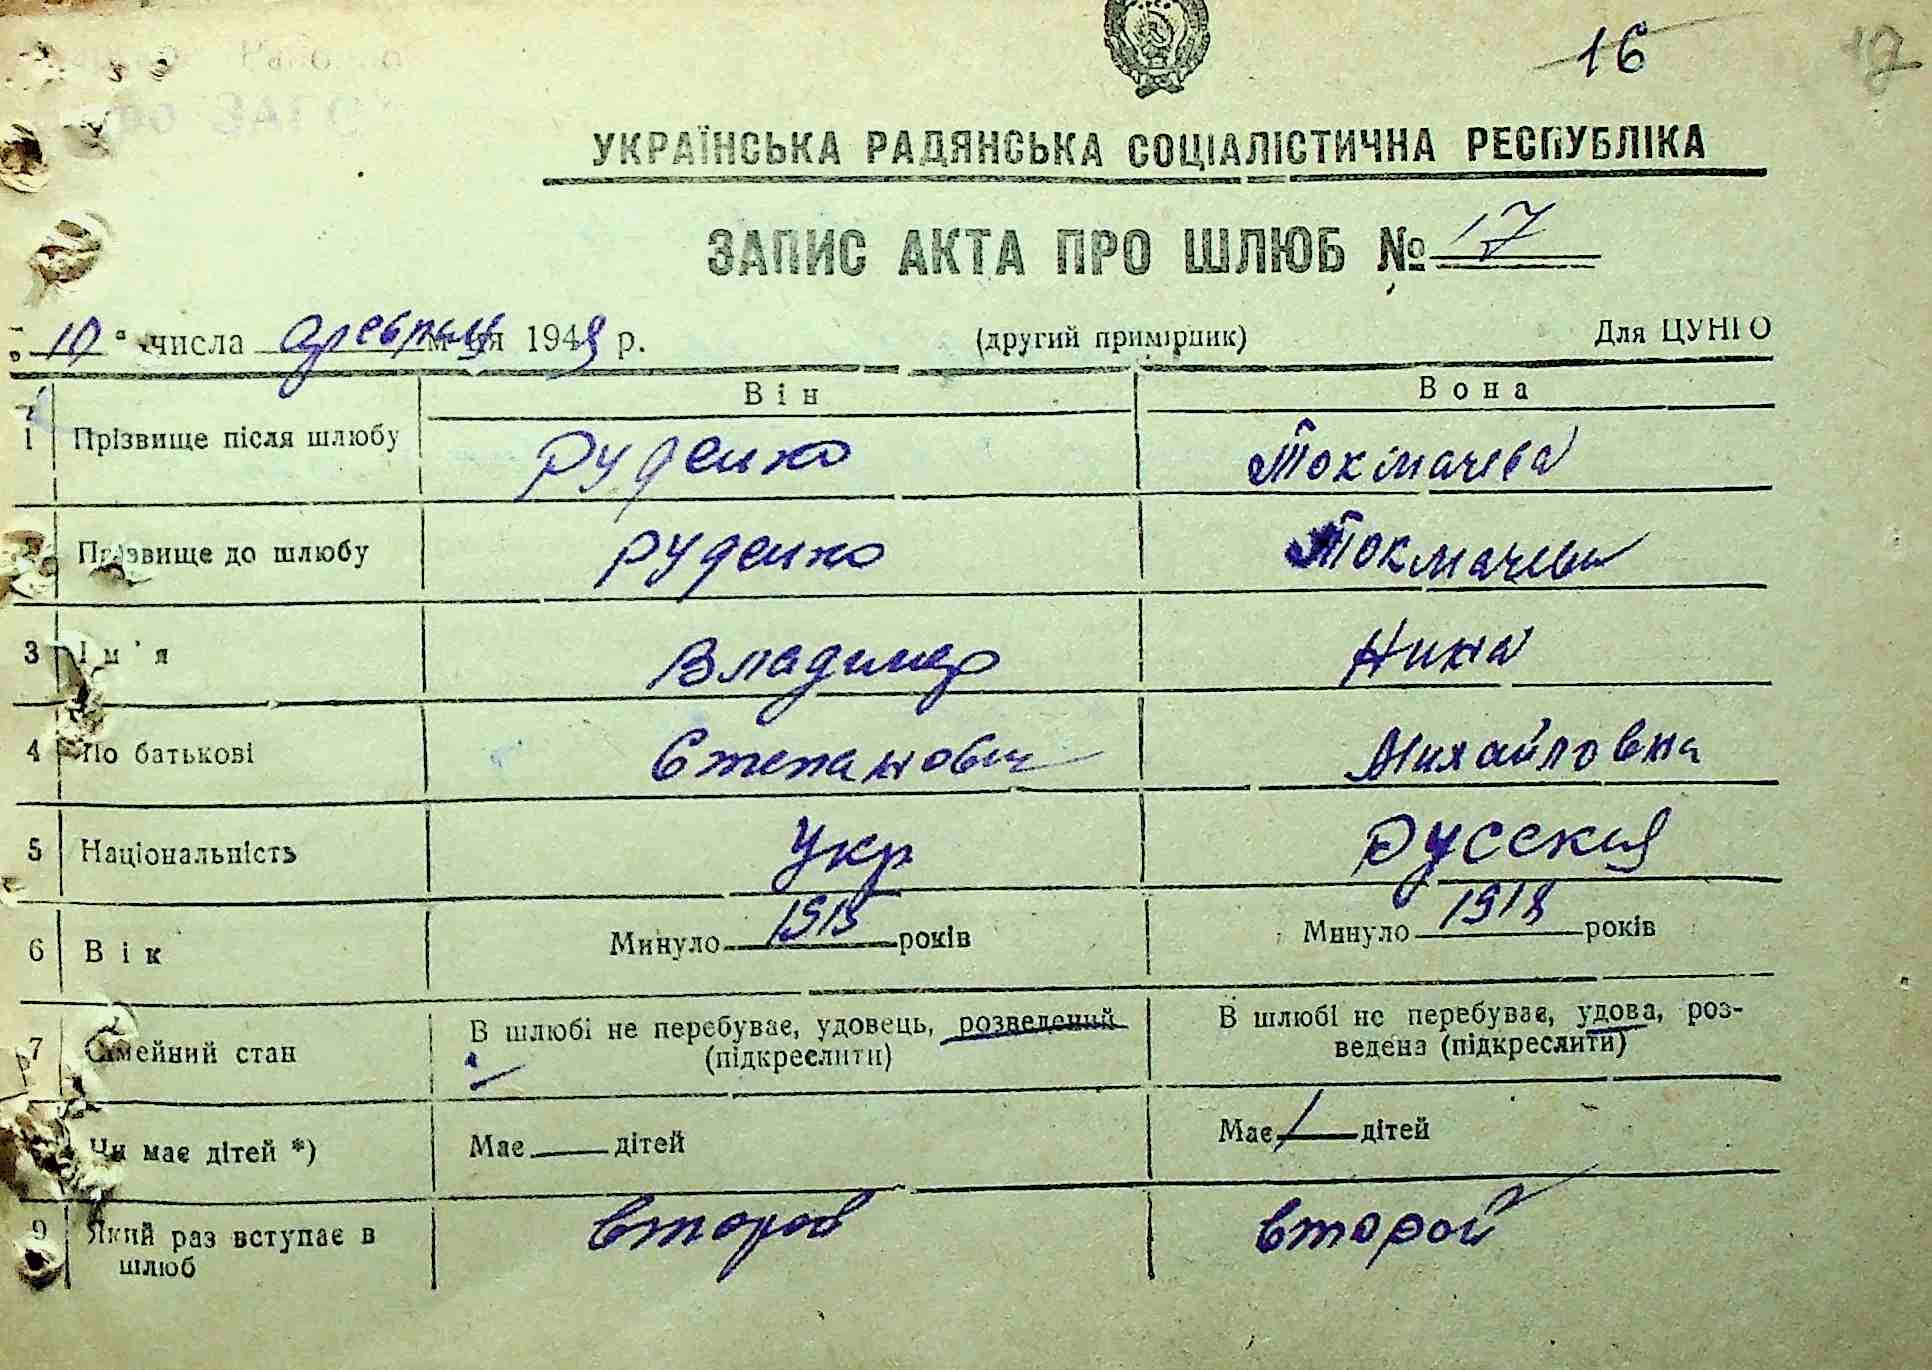 16 17
УКРАЇНСЬКА РАДЯНСЬКА СОЦІАЛІСТИЧНА РЕСПУБЛІКА
ЗАПИС АКТА ПРО ШЛЮБ № 17
„10“ числа февраля м-ця 194 р. (другий примірник) Для ЦУНГО
Він Вона
1 Прізвище після шлюбу Руденко Токмачева
Прізвище до шлюбу Руденко Токмачева
3 Ім'я Владимир Нина
4 По батькові Степанович Михайловна
5 Національність Укр Русская
6 Вік Минуло років Минуло 1918 років
7 Сімейний стан В шлюбі не перебуває, удовець, розведений В шлюбі не перебуває, удова, роз-
(підкреслити) ведена (підкреслити)
Чи має дітей *) Має дітей Має дітей
9 Який раз вступає в второй второй
шлюб